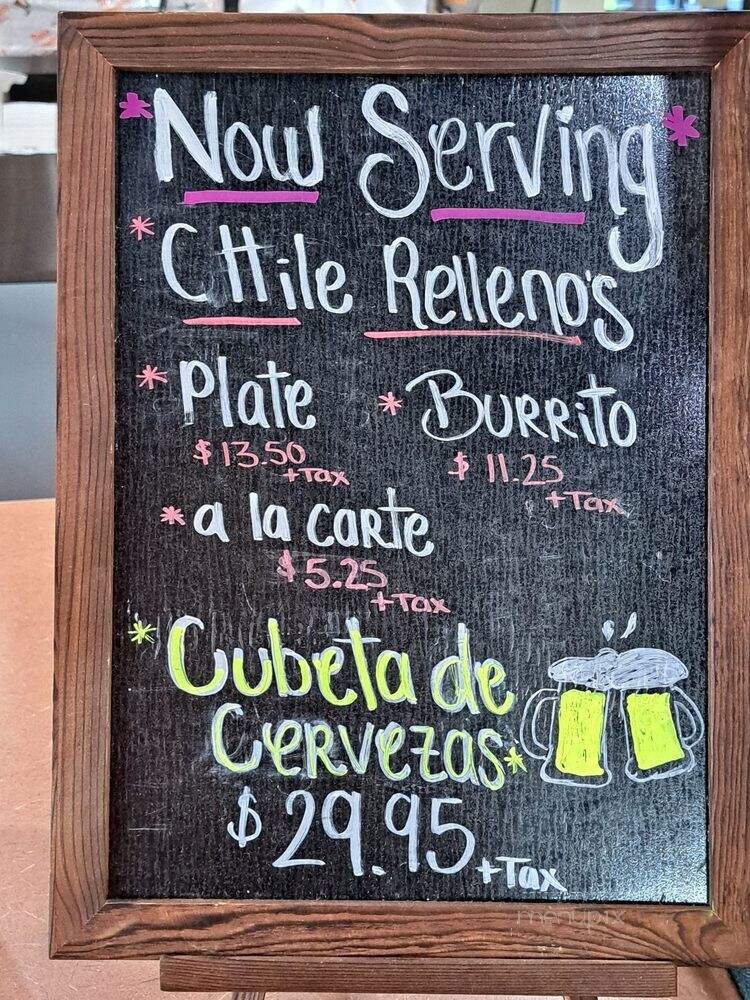 Now Serving
CHile Relleno's
Plate
$13.50
+Tax
BURRiTo
$11.25
+Tax
a la carte
$5.25
+Tax
Cubeta de
Cervezas
$29.95
+Tax
menupix